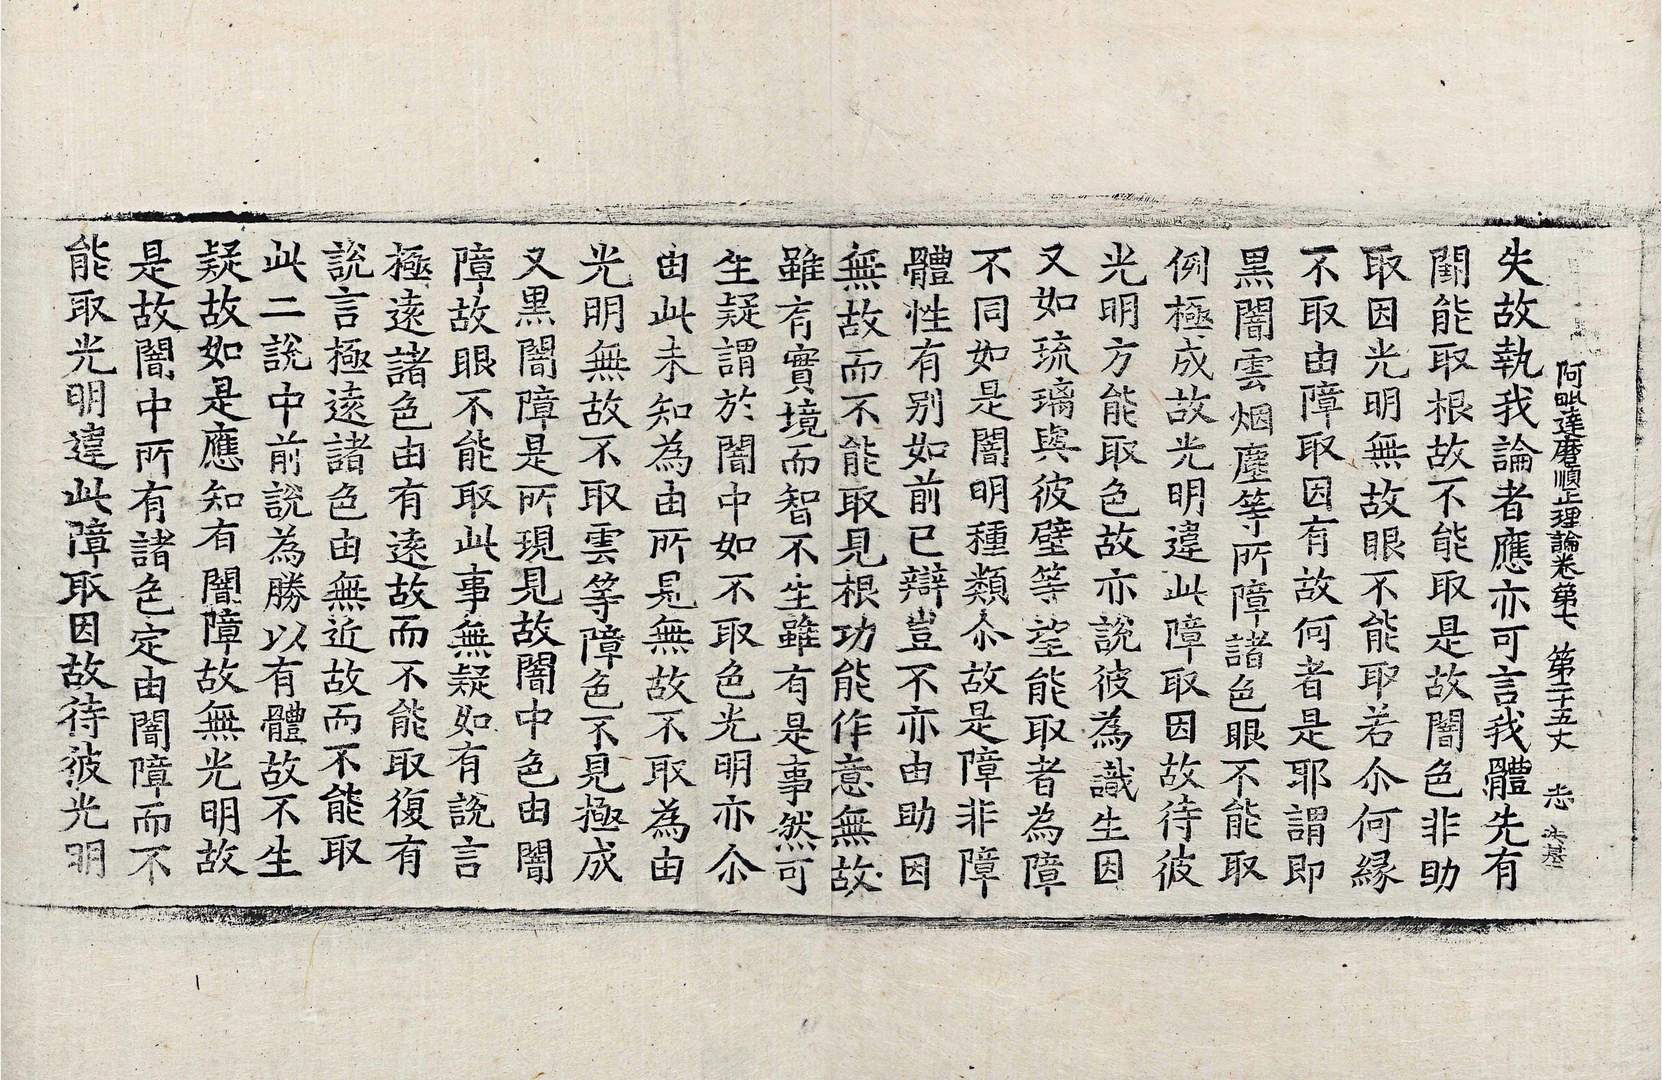 阿毗達磨順正理論卷第七 第二十五丈 志
失故執我論者應亦可言我體先有
闇能取根故不能取是故闇色非助
取因光明無故眼不能取若尒何緣
不取由障取因有故何者是耶謂即
黑闇雲烟塵等所障諸色眼不能取
例極成故光明違此障取因故待彼
光明方能取色故亦說彼為識生因
又如琉璃與彼壁等望能取者為障
不同如是闇明種類尒故是障非障
體性有別如前已辯豈不亦由助因
無故而不能取見根功能作意無故
雖有實境而智不生雖有是事然可
生疑謂於闇中如不取色光明亦尒
由此未知為由所見無故不取為由
光明無故不取雲等障色不見極成
又黑闇障是所現見故闇中色由闇
障故眼不能取此事無疑如有說言
極遠諸色由有遠故而不能取復有
說言極遠諸色由無近故而不能取
此二說中前說為勝以有體故不生
疑故如是應知有闇障故無光明故
是故闇中所有諸色定由闇障而不
能取光明違此障取因故待彼光明